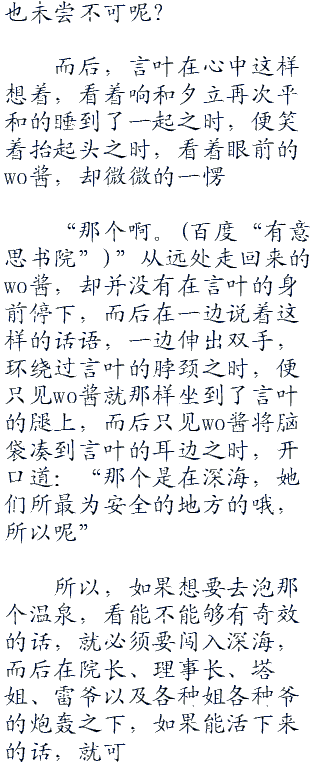 也未尝不可呢？
而后，言叶在心中这样
想着，看着响和夕立再次平
和的睡到了一起之时，便笑
着抬起头之时，看着眼前的
wo酱，却微微的一愣
“那个啊。(百度“有意
思书院”)”从远处走回来的
wo酱，却并没有在言叶的身
前停下，而后在一边说着这
样的话语，一边伸出双手，
环绕过言叶的脖颈之时，便
只见wo酱就那样坐到了言叶
的腿上，而后只见wo酱将脑
袋凑到言叶的耳边之时，开
口道：“那个是在深海，她
们所最为安全的地方的哦，
所以呢”
所以，如果想要去泡那
个温泉，看能不能够有奇效
的话，就必须要闯入深海，
而后在院长、理事长、塔
姐、雷爷以及各种姐各种爷
的炮轰之下，如果能活下来
的话，就可